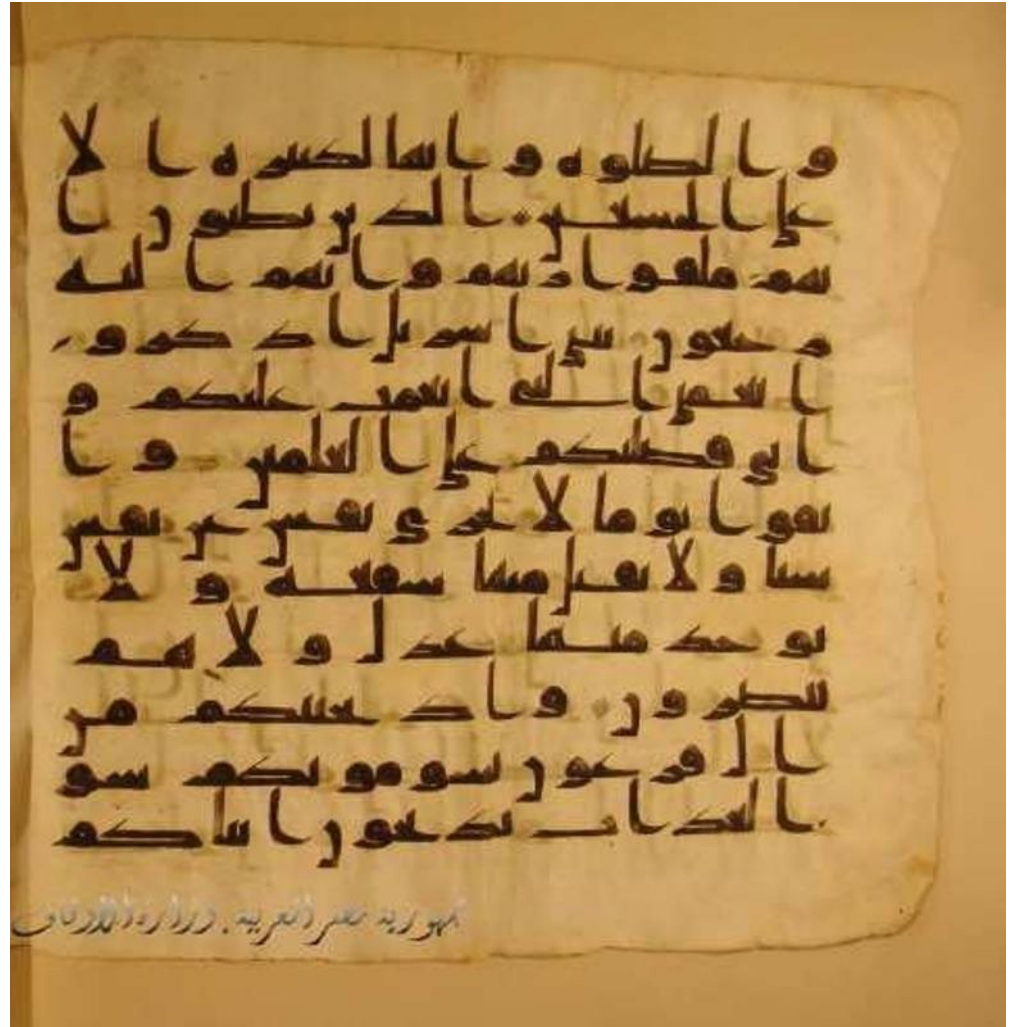 والصلوه وانها لكبيره الا
على الخشعين الذين يظنون ا
نهم ملقوا ربهم وانهم اليه
رجعون يبنى اسريل اذكرو
ا نعمتى التى انعمت عليكم و
انى فضلتكم على العلمين وا
تقوا يوما لا تجزى نفس عن نفس
شيا ولا يقبل منها شفعه ولا
يوخذ منها عدل ولا هم
ينصرون واذ نجينكم من
ال فرعون يسومونكم سو
العذاب يذبحون ابناكم
جمهورية مصر العربية . وزارة الأوقاف